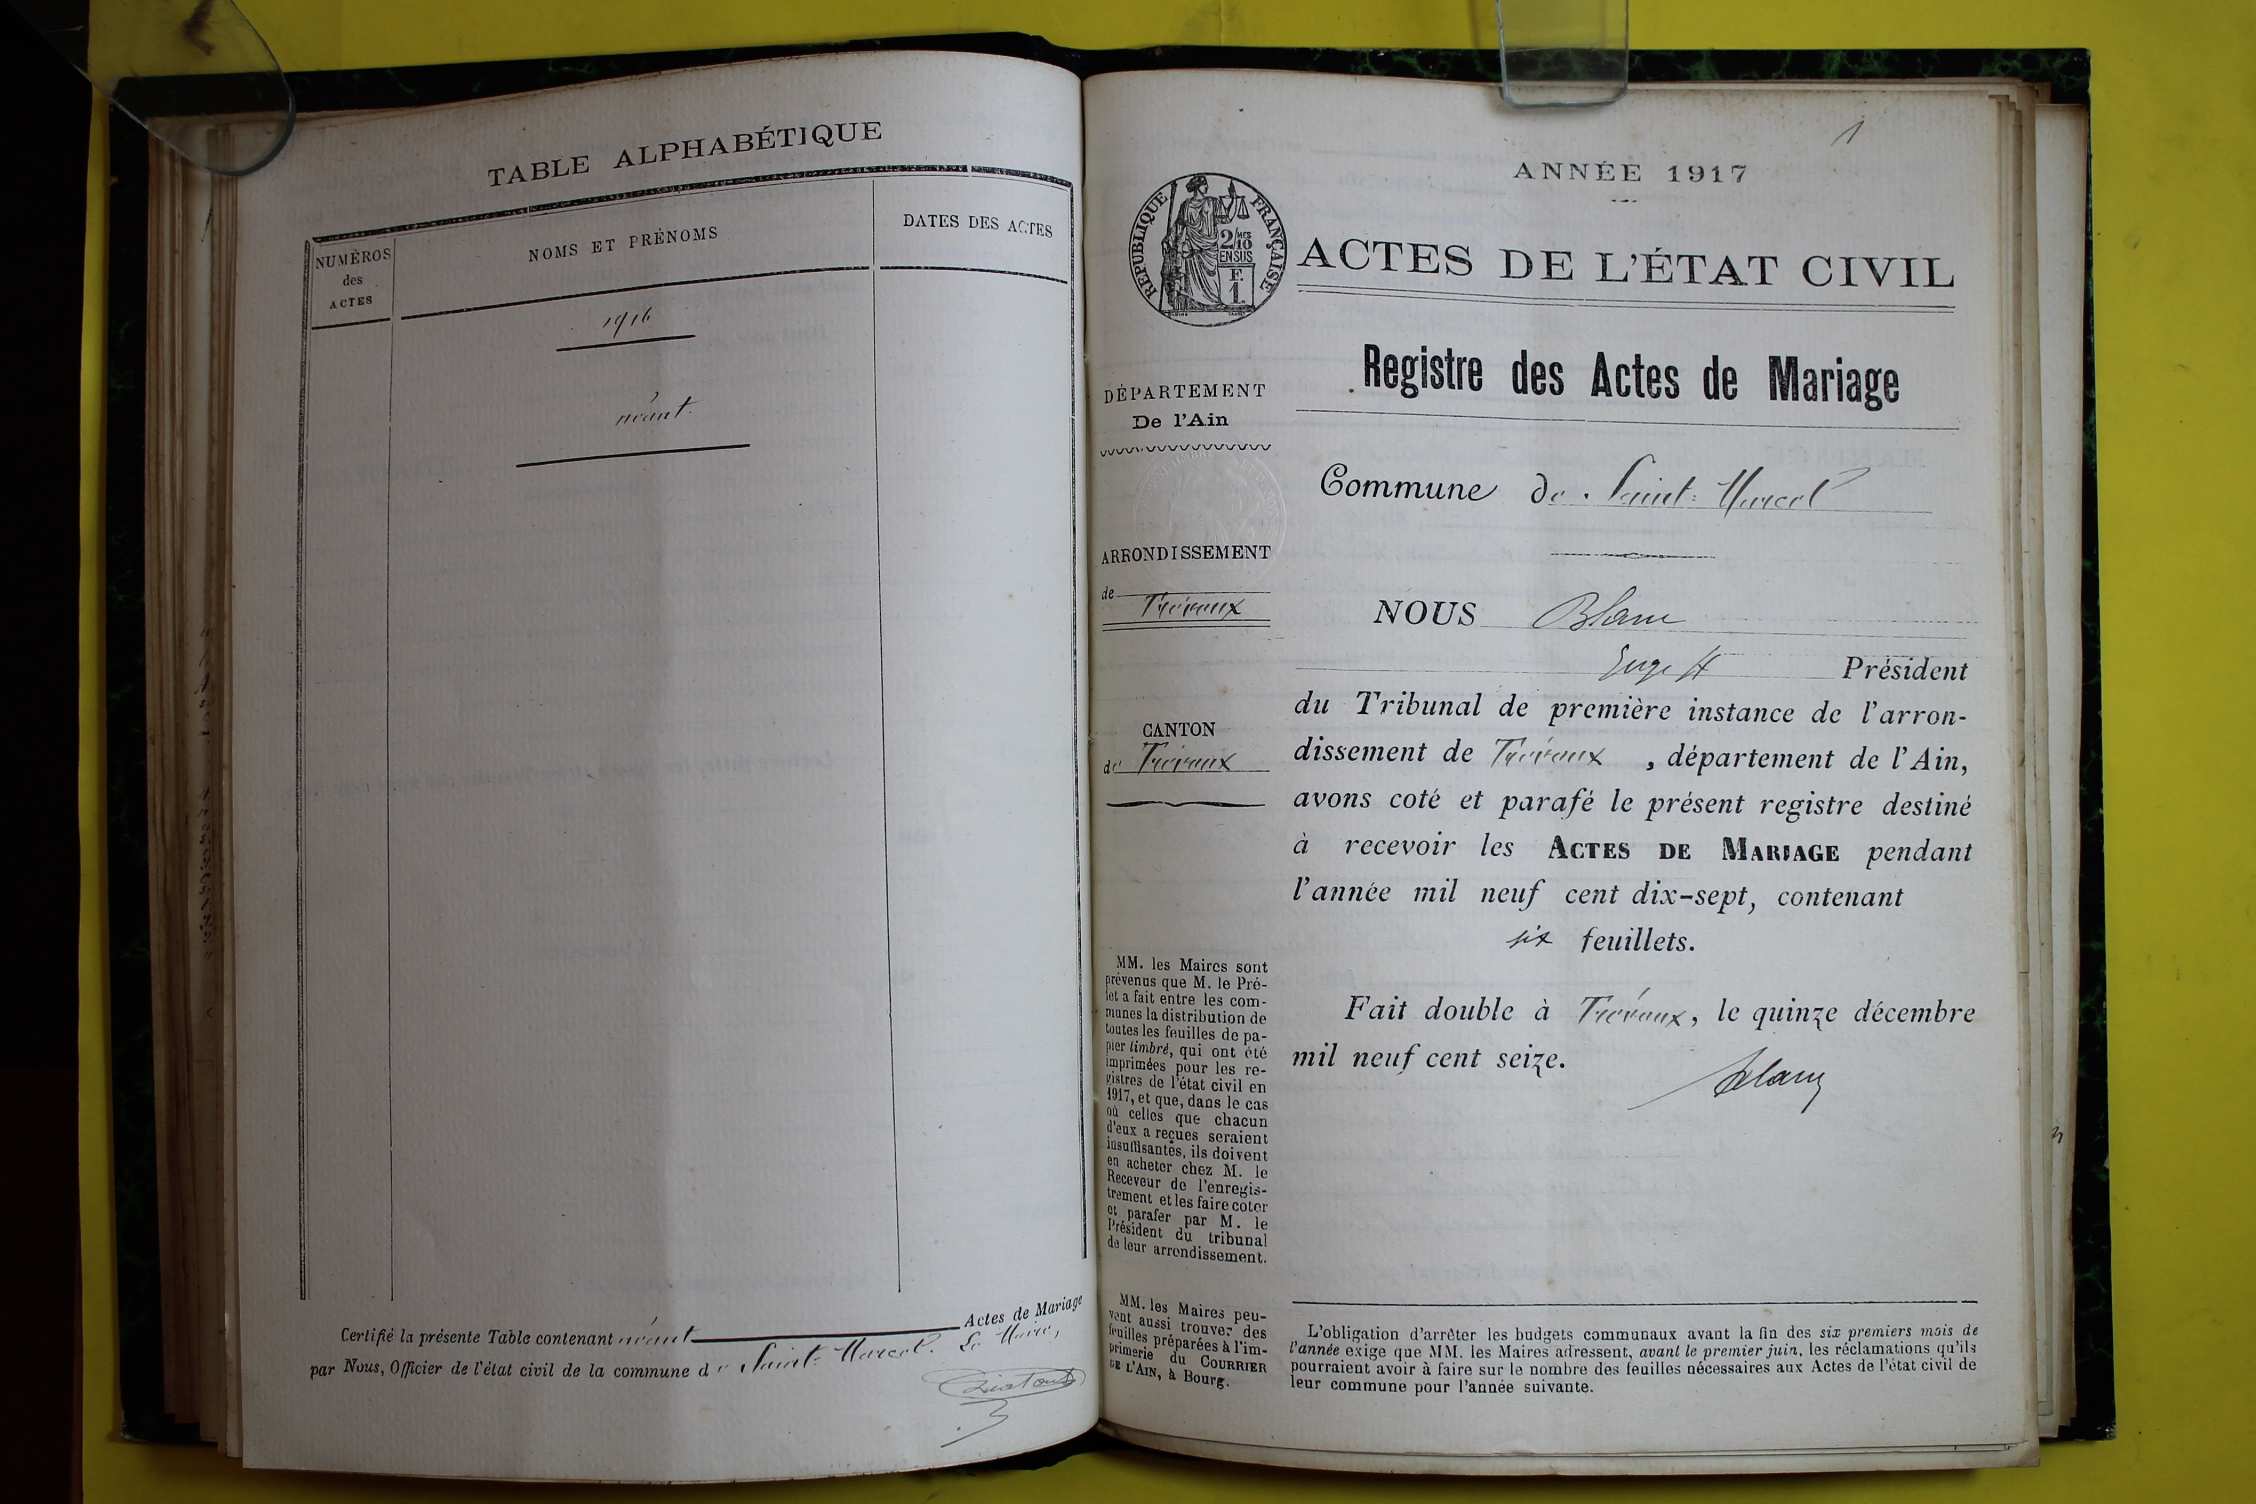 TABLE ALPHABÉTIQUE
NUMÉROS
des
ACTES
NOMS ET PRÉNOMS
DATES DES ACTES
1916
néant.
Certifié la présente Table contenant néant Actes de Mariage
par Nous, Officier de l'état civil de la commune de Saint-Marcel. Le Maire,
1
ANNÉE 1917
RÉPUBLIQUE FRANÇAISE
2/10 MES
EN SUS
F.
1.
ACTES DE L'ÉTAT CIVIL
Registre des Actes de Mariage
DÉPARTEMENT
De l'Ain
ARRONDISSEMENT
de
Trévoux
CANTON
de Trévoux
MM. les Maires sont
prévenus que M. le Pré-
fet a fait entre les com-
munes la distribution de
toutes les feuilles de pa-
pier timbré, qui ont été
imprimées pour les re-
gistres de l'état civil en
1917, et que, dans le cas
où celles que chacun
d'eux a reçues seraient
insuffisantes, ils doivent
en acheter chez M. le
Receveur de l'enregis-
trement et les faire coter
et parafer par M. le
Président du tribunal
de leur arrondissement.
MM. les Maires peu-
vent aussi trouver des
feuilles préparées à l'im-
primerie du COURRIER
DE L'AIN, à Bourg.
Commune de Saint-Marcel
NOUS Blanc
Juge ff Président
du Tribunal de première instance de l'arron-
dissement de Trévoux, département de l'Ain,
avons coté et parafé le présent registre destiné
à recevoir les ACTES DE MARIAGE pendant
l'année mil neuf cent dix-sept, contenant
six feuillets.
Fait double à Trévoux, le quinze décembre
mil neuf cent seize.
Blanc
L'obligation d'arrêter les budgets communaux avant la fin des six premiers mois de
l'année exige que MM. les Maires adressent, avant le premier juin, les réclamations qu'ils
pourraient avoir à faire sur le nombre des feuilles nécessaires aux Actes de l'état civil de
leur commune pour l'année suivante.